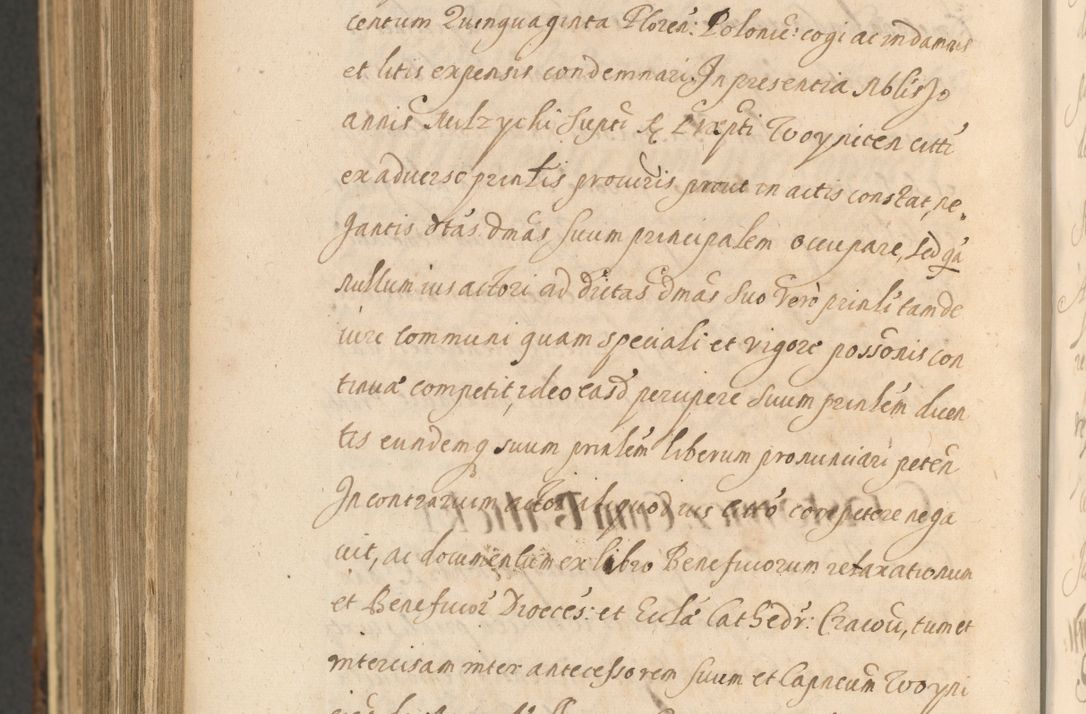 centum Quinquaginta Floren: Polonic: cogi ac in damnis
et litis expensis condemnari. In presentia Nblis Jo
annis Milzychi supti & Exepti Woynicen citti
ex adverso prinlis procuris prout in actis constat, ne„
gantis dtas dmas suum principalem occupare, sed qa
nullum ius actori ad dictas dmas suo vero prinli tam de
iure communi quam speciali et vigore possonis con
tinuæ competit, ideo easd percipere suum prinlem dicen
tis eundemq suum prinlem liberum pronunciari peten
In contrarium actor aliquod ius citto competere nega
vit, ac documentum ex libro Beneficiorum retaxationum
et Beneficior Dioeces: et Eccla Cathedr: Cracou, tum et
intercisam inter antecessorem suum et Capneum Woyni